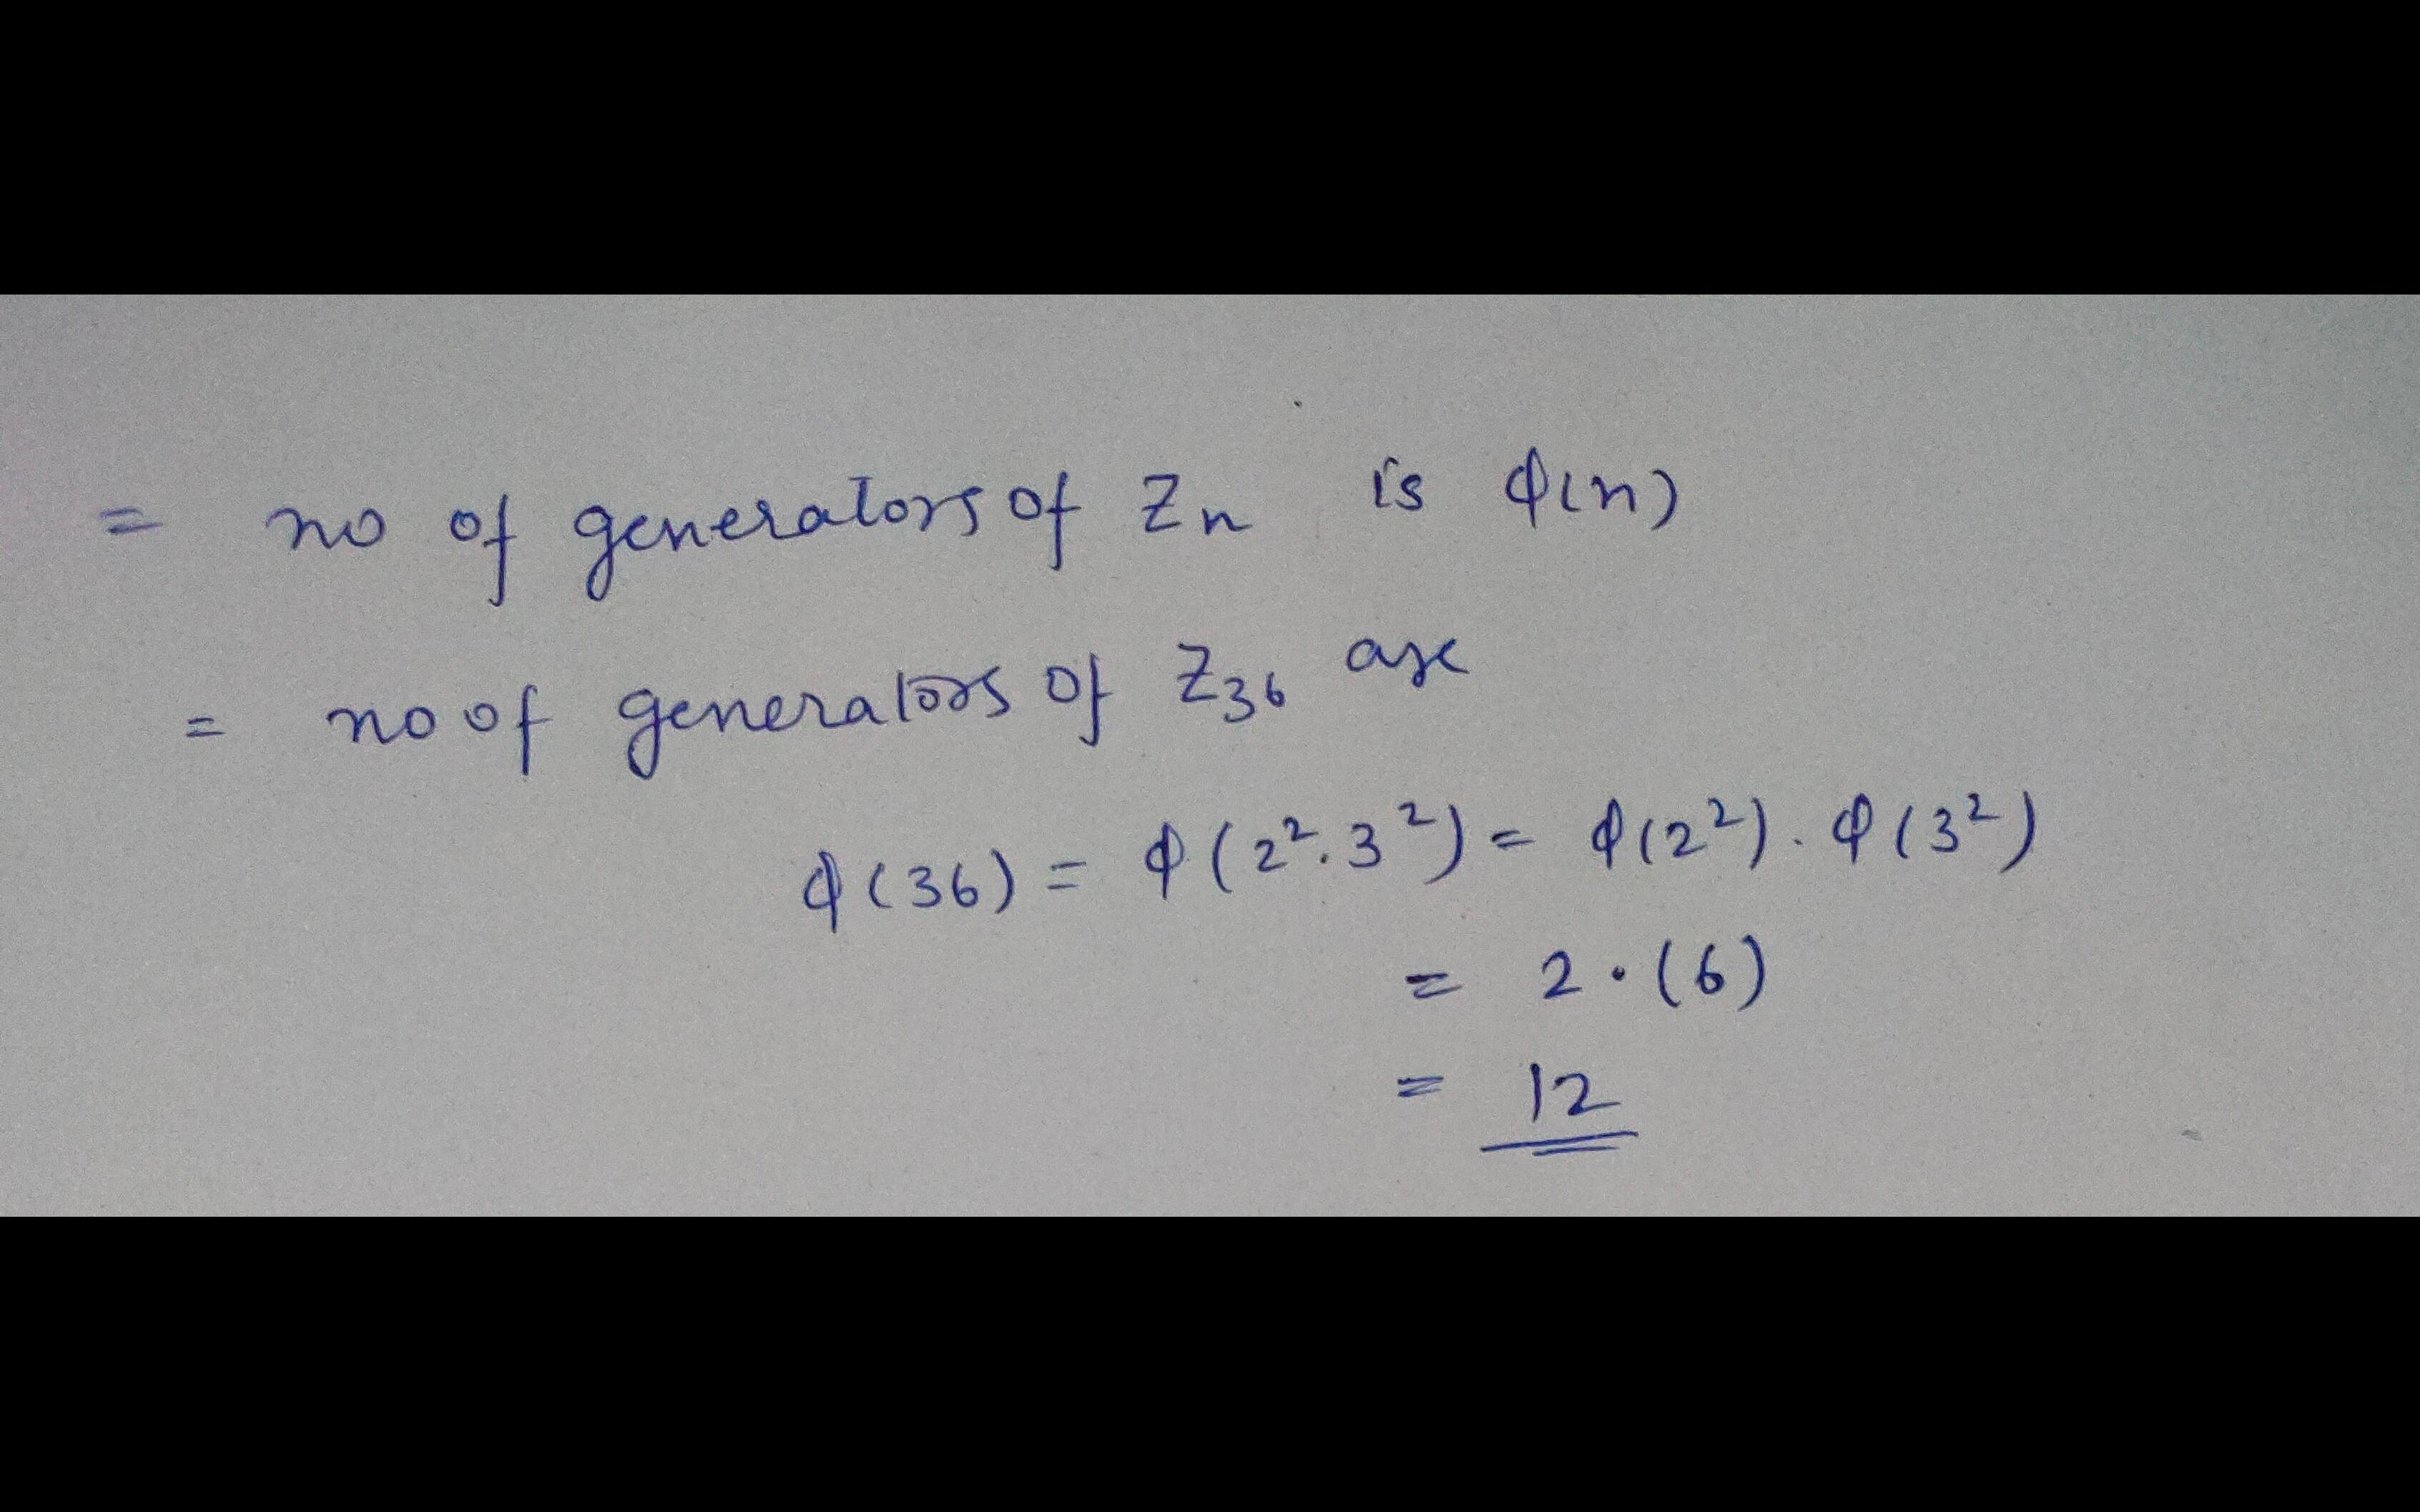 = no of generators of Zn is ϕ(n)
= no of generators of Z36 are
ϕ(36) = ϕ(2².3²) = ϕ(2²).ϕ(3²)
= 2·(6)
= 12